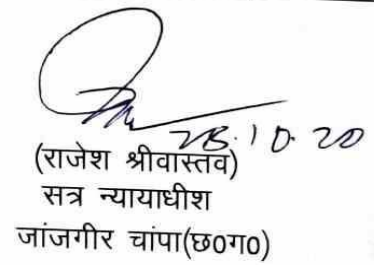 28.10.20
(राजेश श्रीवास्तव)
सत्र न्यायाधीश
जांजगीर चांपा(छ0ग0)